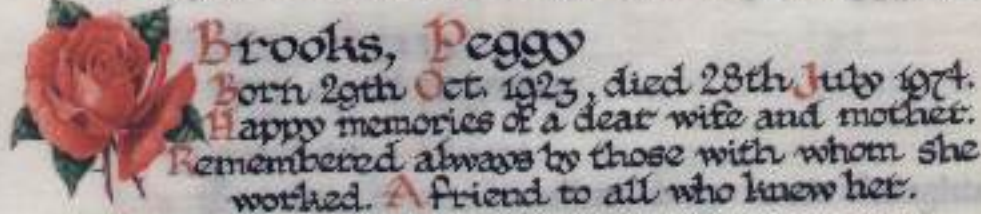 Brooks, Peggy
Born 29th Oct. 1923, died 28th July 1974.
Happy memories of a dear wife and mother.
Remembered always by those with whom she
worked. A friend to all who knew her.